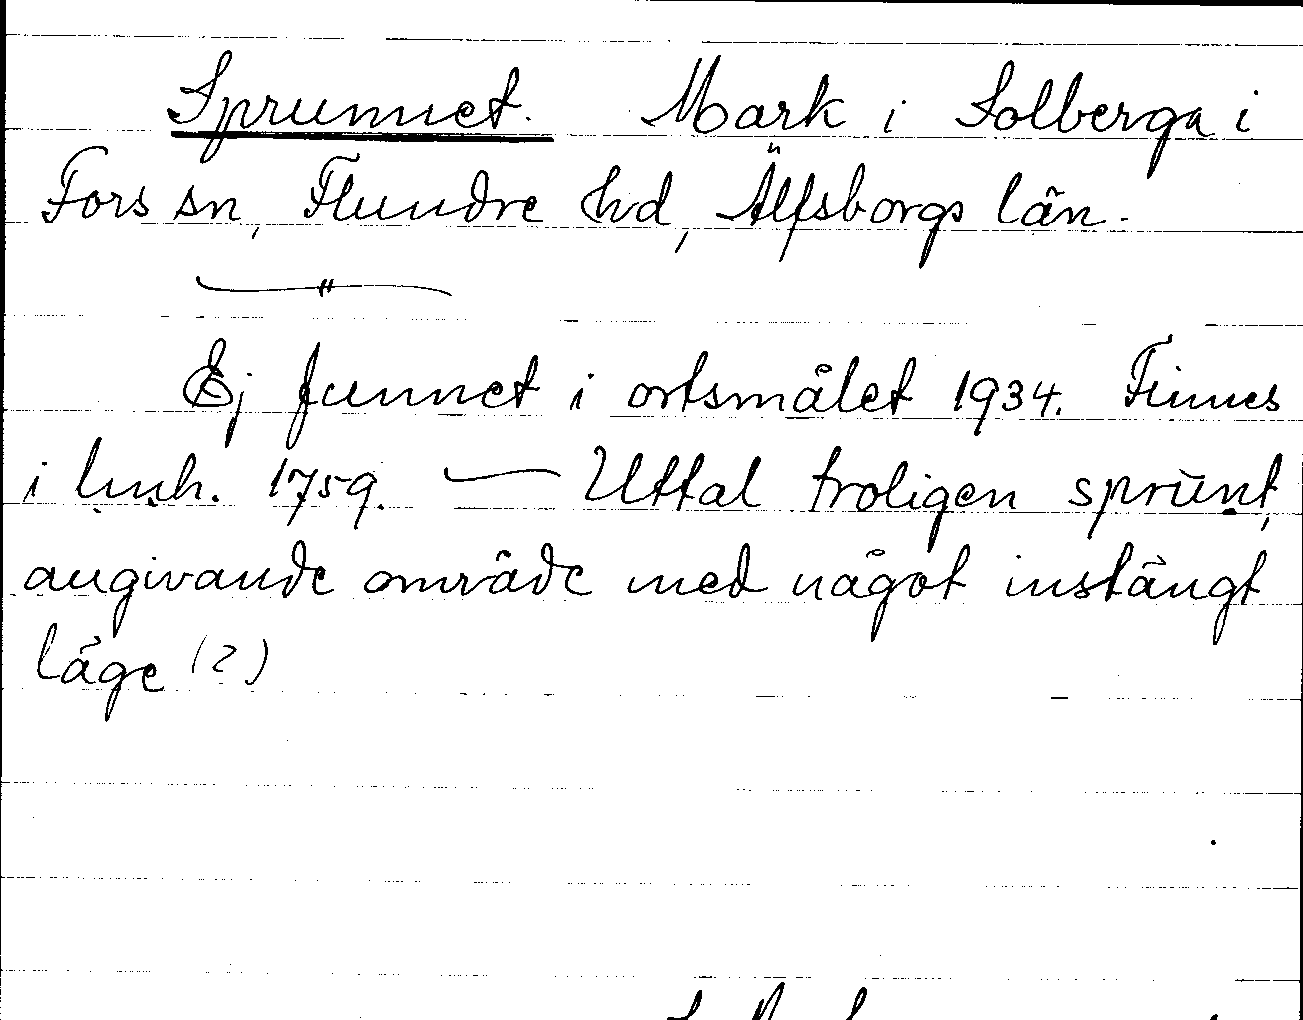 Sprunnet. Mark i Solberga i
Fors sn, Flundre hd, Älfsborgs län.
— " —
Ej funnet i ortsmålet 1934. Finnes
i lmh. 1759. — Uttal troligen sprūnt,
angivande område med något instängt
läge (?)